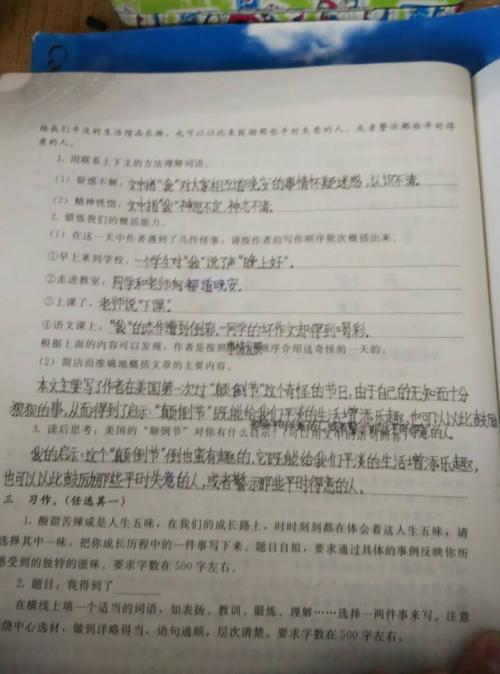 Ca
给我们平淡的生活增添乐趣，也可以以此来鼓励那些平时失意的人，或者警示那些平时得
意的人。
1. 用联系上下文的方法理解词语。
(1) 疑惑不解，文中指“我”对大家相互道晚安的事情怀疑迷惑，认识不清。
(2) 精神恍惚，文中指“我”神思不定，神志不清。
2. 锻炼我们的概括能力。
(1) 在这一天中作者遇到了几件怪事，请按作者的写作顺序依次概括出来。
①早上来到学校，一个学生对“我”说了声“晚上好”。
②走进教室，同学和老师向都道晚安。
③上课了，老师说“下课”。
④语文课上，“我”的杰作遭到倒彩，一同学的坏作文却得到喝彩。
根据上面的内容可以发现，作者是按照事情发展顺序介绍这奇怪的一天的。
(2) 简洁而准确地概括文章的主要内容。
本文主要写了作者在美国第一次过“颠倒节”这个奇怪的节日，由于自己的无知而十分
狼狈的事，从而得到了启示：“颠倒节”既能给我们平淡的生活增添乐趣，也可以以此鼓励
那些平时失意的人，或者警示那些平时得意的人。
3. 读后思考：美国的“颠倒节”对你有什么启示？（可以用文中的话句回答）
我的启示：这个“颠倒节”倒也蛮有趣的，它既能给我们平淡的生活增添乐趣，
也可以以此鼓励那些平时失意的人，或者警示那些平时得意的人。
三 习作。（任选其一）
1. 酸甜苦辣咸是人生五味，在我们的成长路上，时时刻刻都在体会着这人生五味，请
选择其中一味，把你成长历程中的一件事写下来。题目自拟，要求通过具体的事例反映你所
感受到的独特的滋味。要求字数在 500 字左右。
2. 题目：我得到了______
在横线上填一个适当的词语，如表扬、教训、锻炼、理解……选择一两件事来写。注意
绕中心选材，做到详略得当，语句通顺，层次清楚。要求字数在 500 字左右。